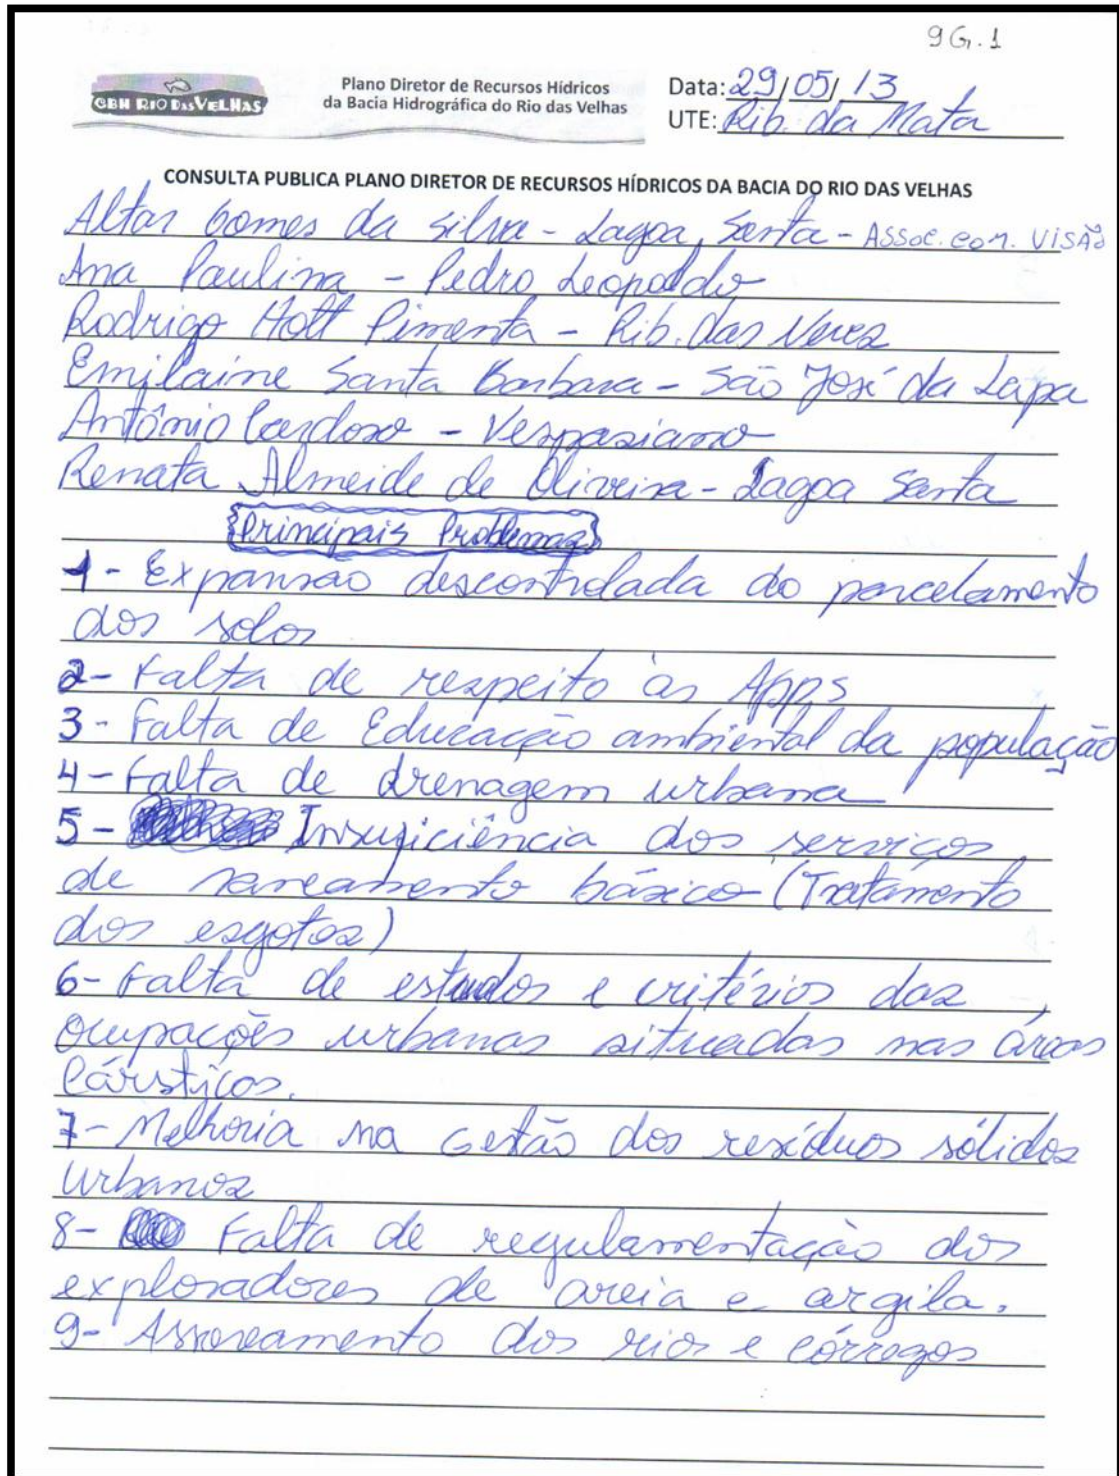 9G.1
CBH RIO DAS VELHAS
Plano Diretor de Recursos Hídricos
da Bacia Hidrográfica do Rio das Velhas
Data: 29/05/13
UTE: Rib. da Mata
CONSULTA PUBLICA PLANO DIRETOR DE RECURSOS HÍDRICOS DA BACIA DO RIO DAS VELHAS
Altar Gomes da Silva - Lagoa Santa - Assoc. com. VISÃO
Ana Paulina - Pedro Leopoldo
Rodrigo Hott Pimenta - Rib. das Neves
Emilaine Santa Barbara - São José da Lapa
Antônio Cardoso - Vespasiano
Renata Almeide de Oliveira - Lagoa Santa
Principais Problemas
1- Expansão descontrolada do parcelamento
dos solos
2- Falta de respeito as Apps
3- Falta de Educação ambiental da população
4- Falta de drenagem urbana
5- Insuficiência dos serviços
de saneamento básico (Tratamento
dos esgotos)
6- Falta de estudos e critérios das
ocupações urbanas situadas nas áreas
Cársticos.
7- Melhoria na Gestão dos resíduos sólidos
urbanos
8- Falta de regulamentação dos
exploradores de areia e argila.
9- Assoreamento dos rios e córregos